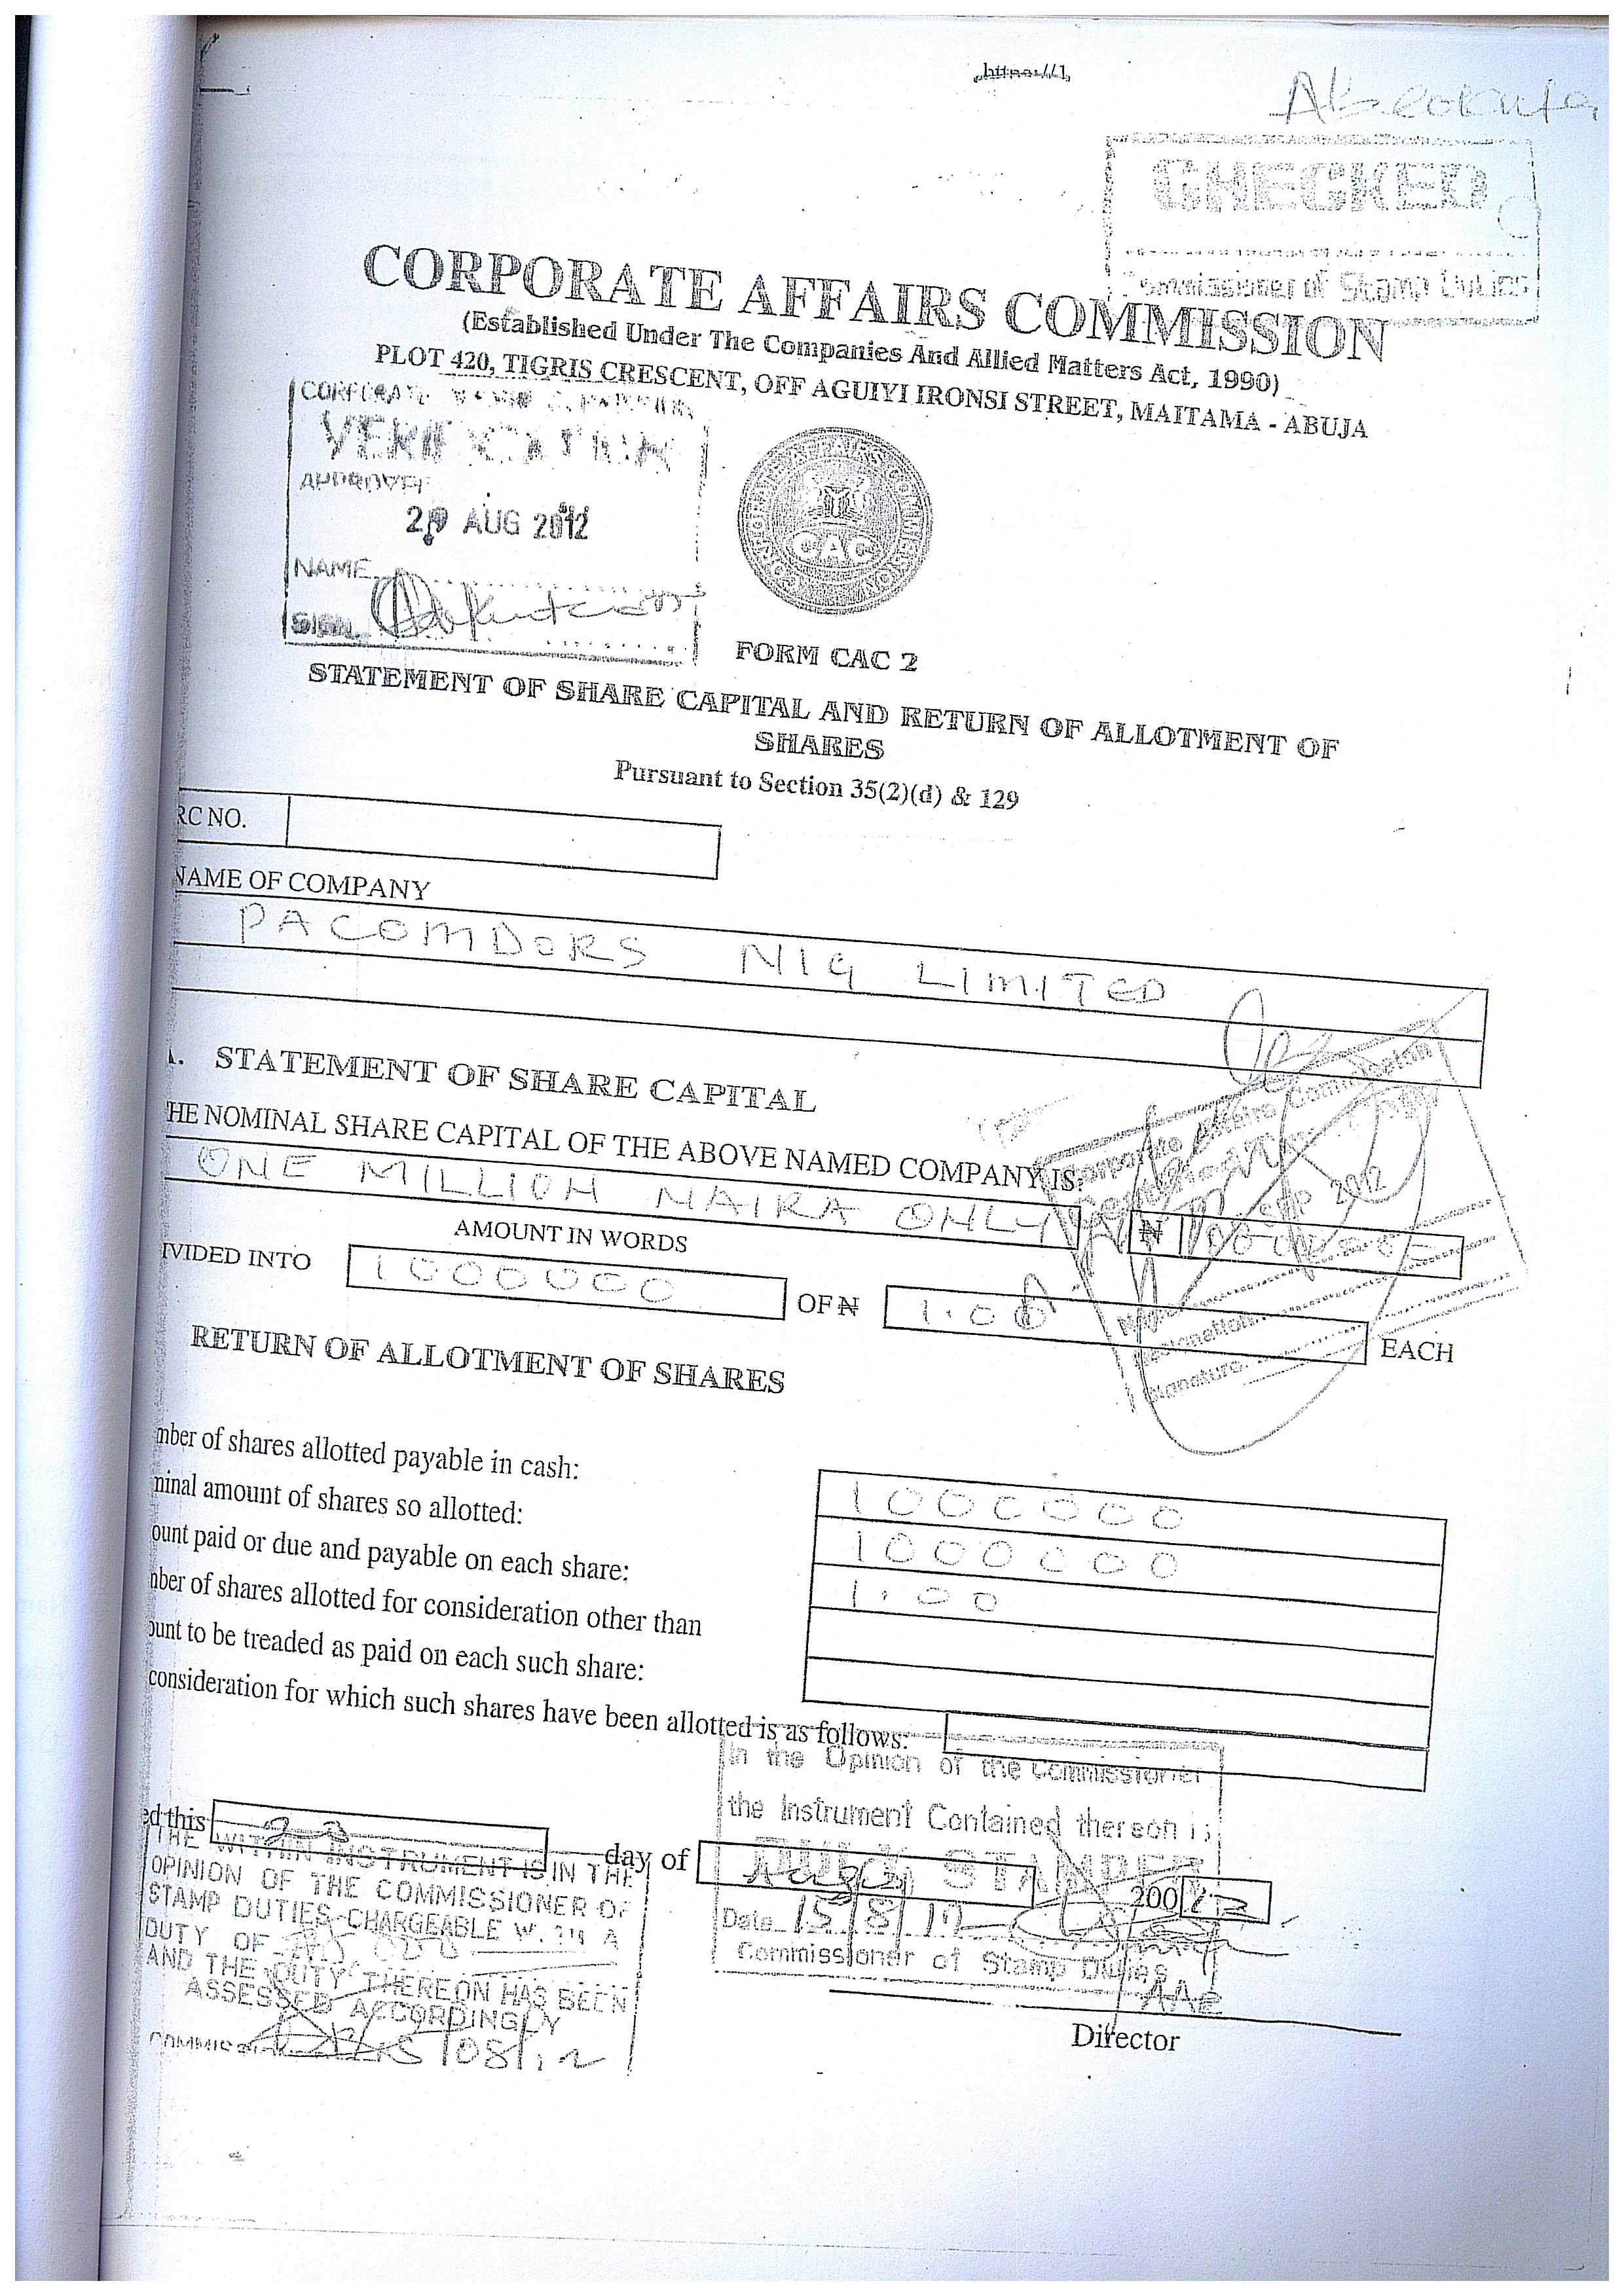 Abeokuta
CHECKED
Commissioner of Stamp Duties
CORPORATE AFFAIRS COMMISSION
(Established Under The Companies And Allied Matters Act, 1990)
PLOT 420, TIGRIS CRESCENT, OFF AGUIYI IRONSI STREET, MAITAMA - ABUJA
VERIFICATION
APPROVED
AUG 2012
NAME
SIGN.
CAC
FORM CAC 2
STATEMENT OF SHARE CAPITAL AND RETURN OF ALLOTMENT OF
SHARES
Pursuant to Section 35(2)(d) & 129
RC NO.
NAME OF COMPANY
PACOMDORS NIG LIMITED
STATEMENT OF SHARE CAPITAL
HE NOMINAL SHARE CAPITAL OF THE ABOVE NAMED COMPANY IS:
ONE MILLION NAIRA ONLY ₦
AMOUNT IN WORDS
IVIDED INTO 1000000 OF ₦ 1.00 EACH
Corporate Affairs Commission
2012
Signature
RETURN OF ALLOTMENT OF SHARES
mber of shares allotted payable in cash: 1000000
minal amount of shares so allotted: 1000000
ount paid or due and payable on each share: 1.00
nber of shares allotted for consideration other than
ount to be treaded as paid on each such share:
consideration for which such shares have been allotted is as follows:
In the Opinion of the Commissioner
the Instrument Contained thereon is
DULY STAMPED
Date 15/8/12
Commissioner of Stamp Duties
ed this day of 200
THE WITHIN INSTRUMENT IS IN THE
OPINION OF THE COMMISSIONER OF
STAMP DUTIES CHARGEABLE WITH A
DUTY OF
AND THE DUTY THEREON HAS BEEN
ASSESSED ACCORDINGLY
Director